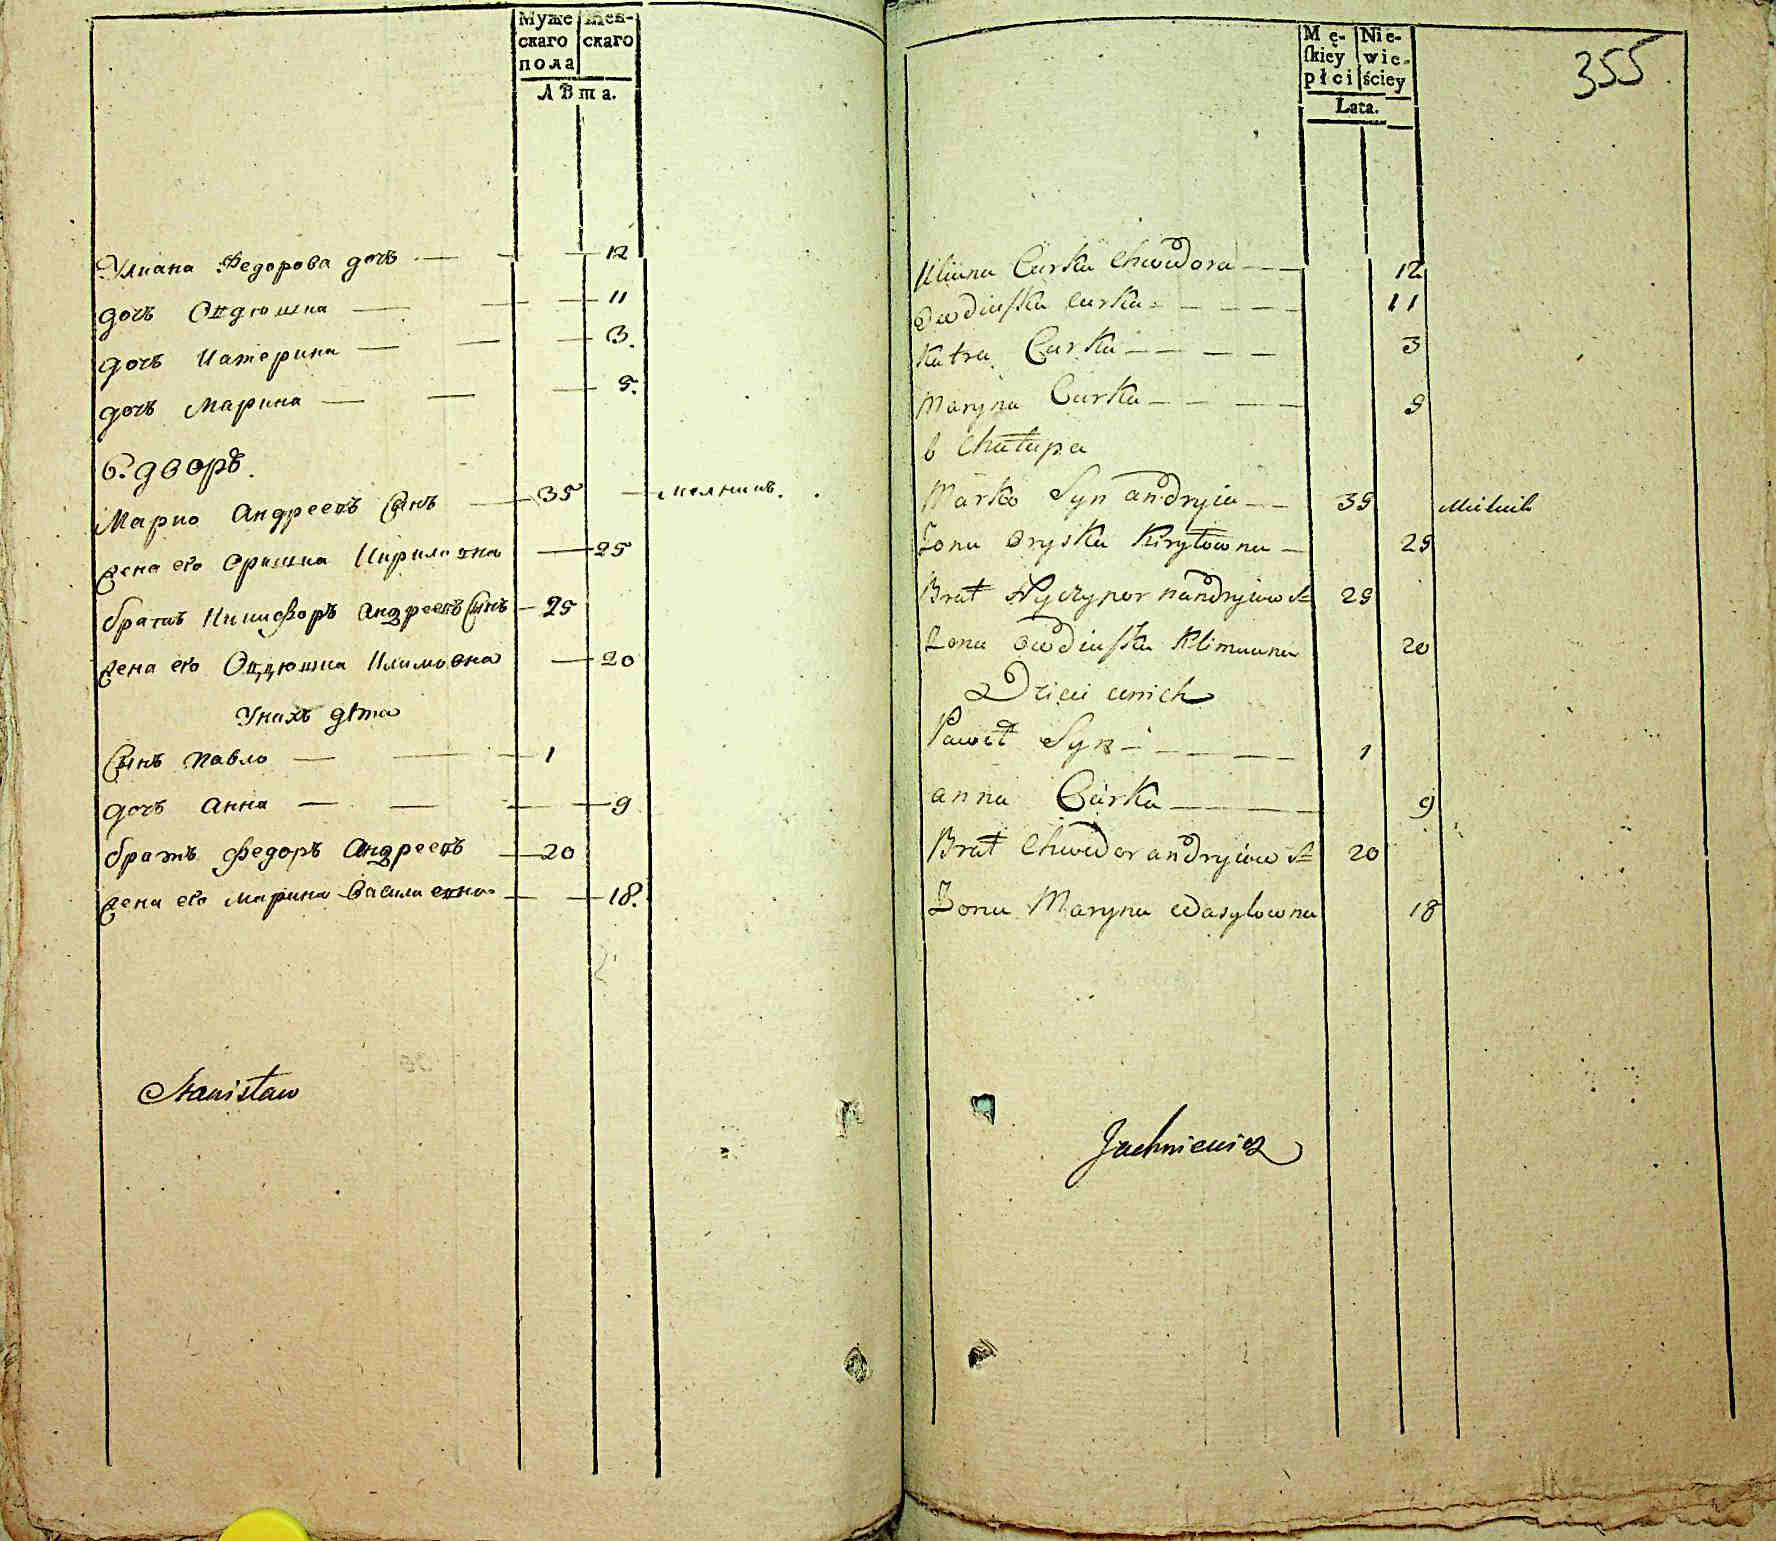 Муже
скаго
пола
Жен-
скаго
Лѣта.
Улиана Федорова дочь 12
дочь Овдюшка 11
дочь Катерина 3.
дочь Марина 5.
6. дворъ.
Марко Андреевъ сынъ 35 мелникъ.
жена его Оришка Кириловна 25
братъ Никифоръ Андреевъ сынъ 25
жена его Овдюшка Климовна 20
У нихъ дѣти
сынъ Павло 1
дочь Анна 9
братъ Федоръ Андреевъ 20
жена его Марина Василевна 18.
Stanisław
Mę-
ſkiey
płci
Nie-
wie-
ściey
Lata.
355
Uliana Curka Chwedora 12
Owdiuſka curka 11
Katra Curka 3
Maryna Curka 5
6 Chałupa
Marko Syn andryia 35 Mielnik
Żona Oryska Kiryłowna 25
Brat Nyczypor nandryiow S 25
Żona Owdiuſka Klimowna 20
Dzieci unich
Paweł Syn 1
anna Curka 9
Brat Chwedor andryiow S 20
Żona Maryna Wasylowna 18
Jachniewicz